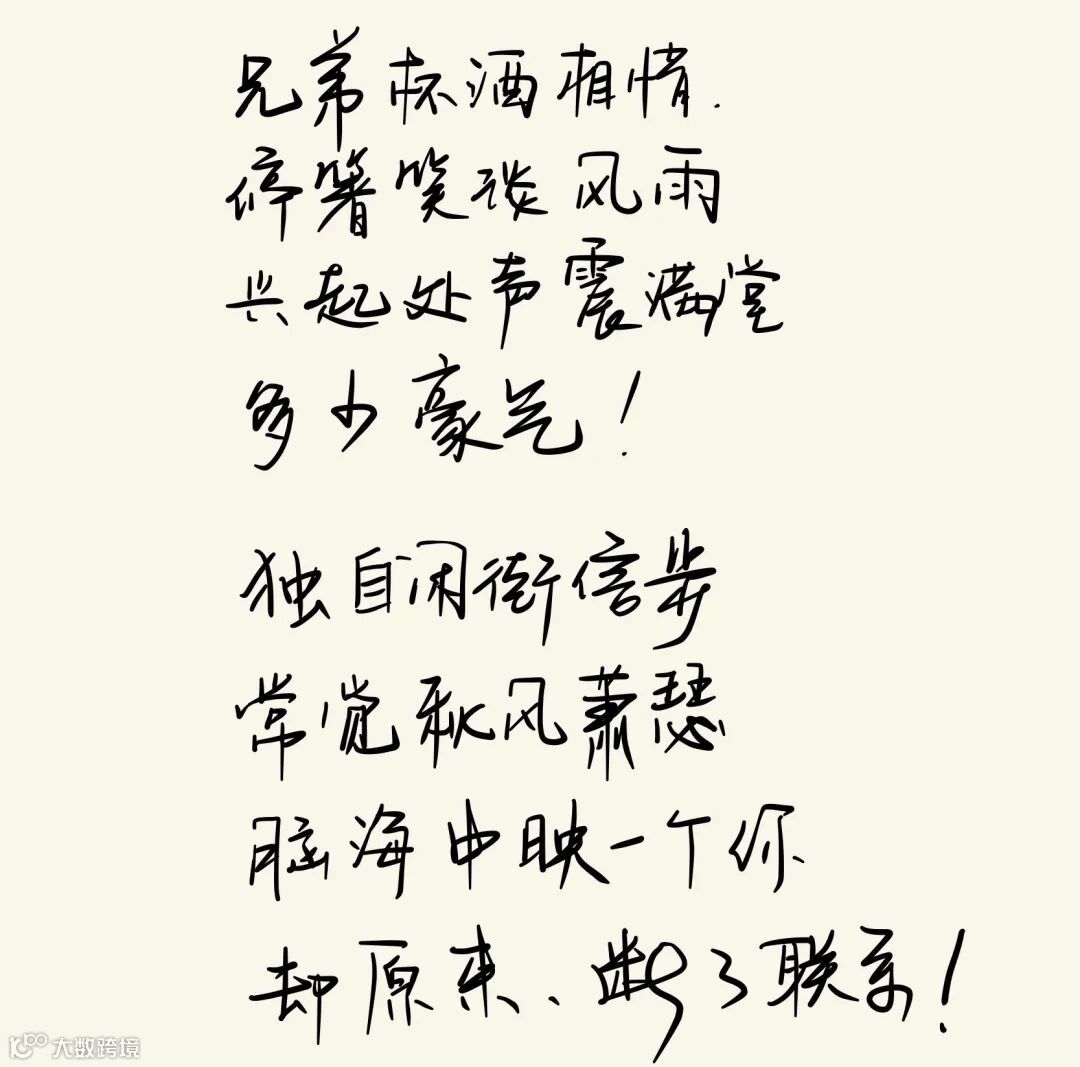 兄弟杯酒相情.
停箸笑谈风雨
兴起处声震满堂
多少豪气!
独自闲街信步
常觉秋风萧瑟
脑海中映一个你
却原来、断了联系!
大数跨境